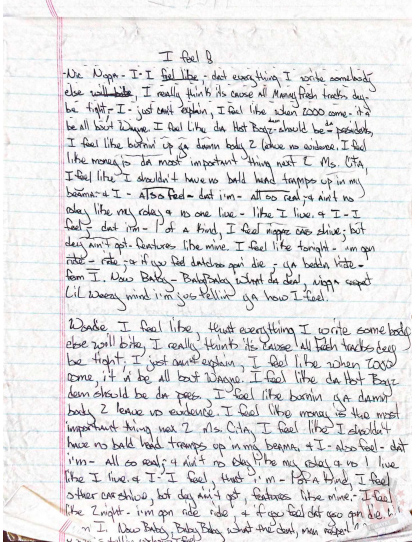 I feel
Nic Nigga - I - I feel like - dat everything I write somebody
else will bite, I really think its cause all Manny fresh tracks dey
be tight, - I - just can't explain, I feel like when 2000 come - it'a
be all bout Wayne. I feel like Da Hot Boyz should be presidents,
I feel like burnin up ya damn body 2 leave no evidence. I feel
like money is da most important thing next 2 Ms. Cita,
I feel like I shouldn't have no bald head tramps up in my
beama, & I - Also feel - dat i'm - all so real, & Ain't no
roley like my roley & no one live - like I live. & I - I
feel, dat i'm - 1 of a kind, I feel niggaz cas shive, but
dey ain't got features like mine. I feel like tonight - im gon
ride - ride, & if you feel datchoo gon die, ya bedda hide -
from I. Now Baby - BabyBaby What da deal, nigga
Lil Weezy mind i'm jus tellin ya how I feel!
Woadie I feel like, that everything I write some body
else will bite, I really think its cause all fresh tracks deey
be tight, I just can't explain, I feel like when 2000
come, it'a be all bout Wayne. I feel like da Hot Boyz
damn should be da pres, I feel like bornin ya damn
body 2 leave no evidence. I feel like money is the most
important thing nex 2 Ms. Cita, I feel like I shouldn't
have no bald head tramps up in my beama, & I - also feel - dat
i'm - All so real, & Ain't no roley like my roley & no 1 live
like I live. & I - I feel, that i'm - 1 of a kind, I feel
other cas shive, but dey ain't got, features like mine. I feel
like 2night - i'm gon ride ride, & if you feel dat you gon die
I. Now Baby, Baby Baby what the deal, man
feel